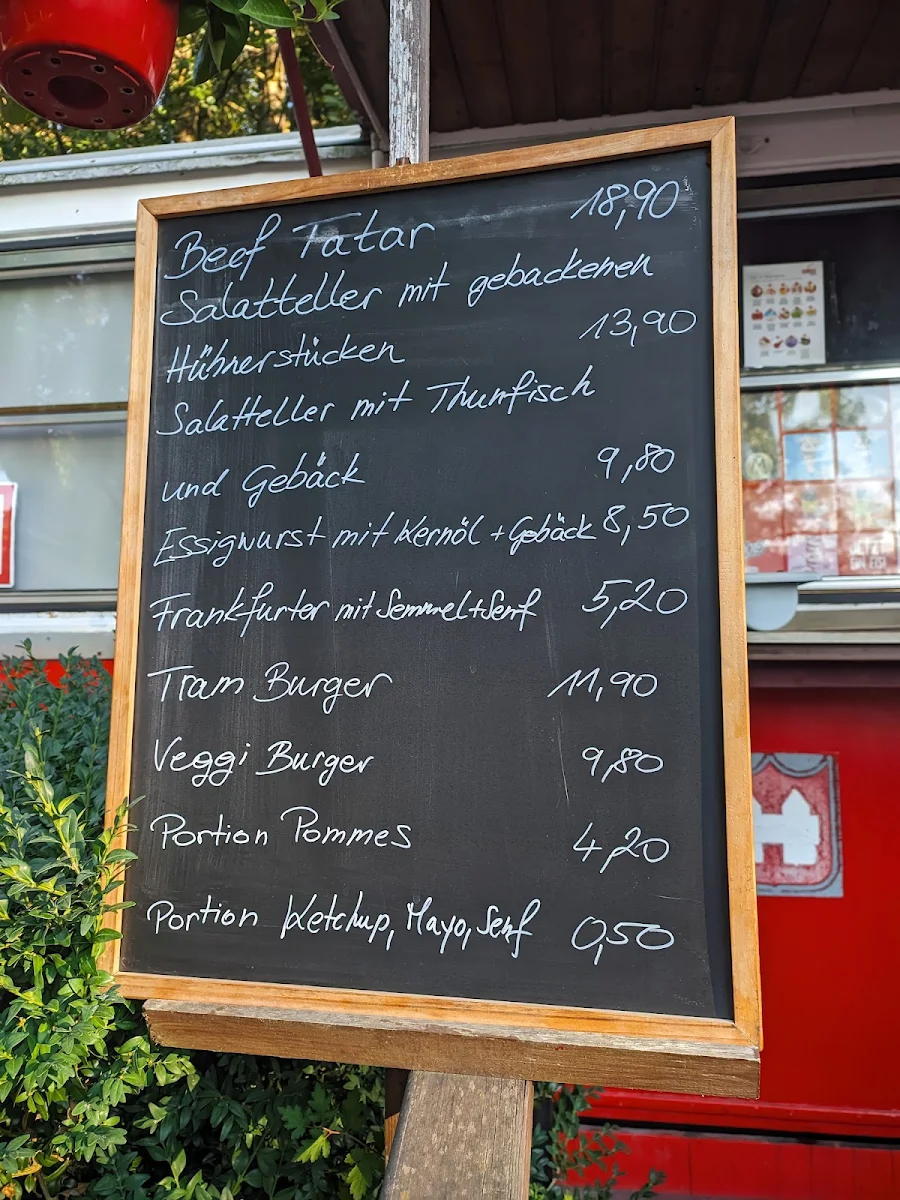 Beef Tatar 18,90
Salatteller mit gebackenen
Hühnerstücken 13,90
Salatteller mit Thunfisch
und Gebäck 9,80
Essigwurst mit Kernöl + Gebäck 8,50
Frankfurter mit Semmel+Senf 5,20
Tram Burger 11,90
Veggi Burger 9,80
Portion Pommes 4,20
Portion Ketchup, Mayo, Senf 0,50